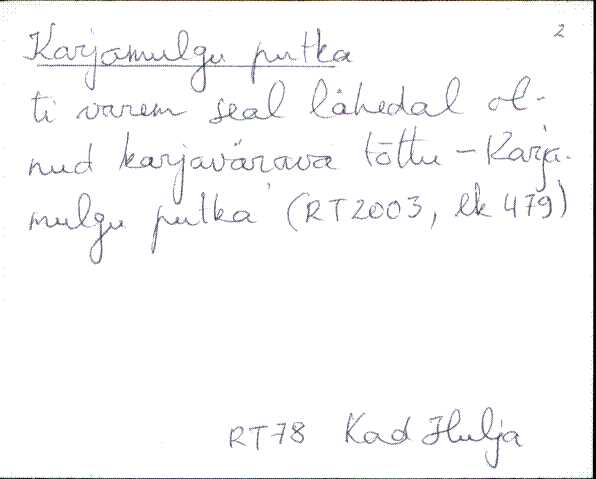 2
Karjamulgu putka
ti varem seal lähedal ol-
nud karjavärava tõttu – Karja-
mulgu putka (RT2003, lk 479)
RT78 Kad Hulja